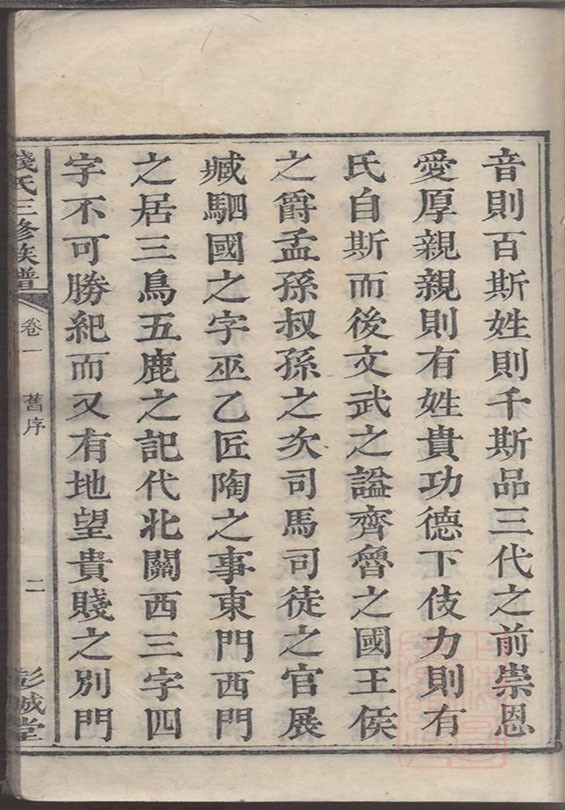 音則百斯姓則千斯品三代之前崇恩
愛厚親親則有姓貴功德下伎力則有
氏自斯而後文武之謚齊魯之國王侯
之爵孟孫叔孫之次司馬司徒之官展
臧駟國之字巫乙匠陶之事東門西門
之居三鳥五鹿之記代北關西三字四
字不可勝紀而又有地望貴賤之別門
錢氏三修族譜 卷一 舊序 二 彭城堂